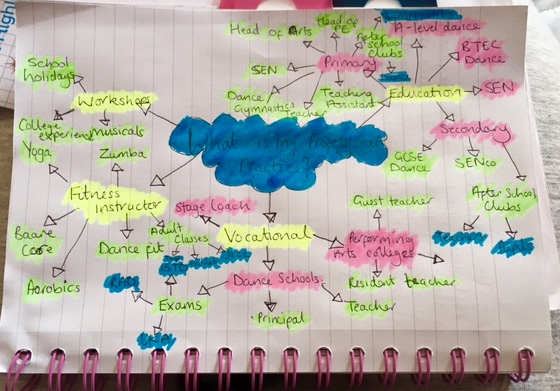 Head of Arts
Head of
PE
After
school
clubs
A-level dance
School
holidays
SEN
Primary
BTEC
Dance
Workshops
Dance
Gymnastics
Teacher
Teaching
Assistant
Education
SEN
College
experience
Musicals
What is my Professional
Practice?
Secondary
Yoga
Zumba
GCSE
Dance
SENCo
Fitness
instructor
Stage Coach
Guest teacher
After School
Clubs
Baare
Core
Dance fit
Adult
Classes
Vocational
Performing
Arts colleges
ISTD
RAD
Aerobics
Exams
Dance Schools
Resident teacher
Teacher
Principal